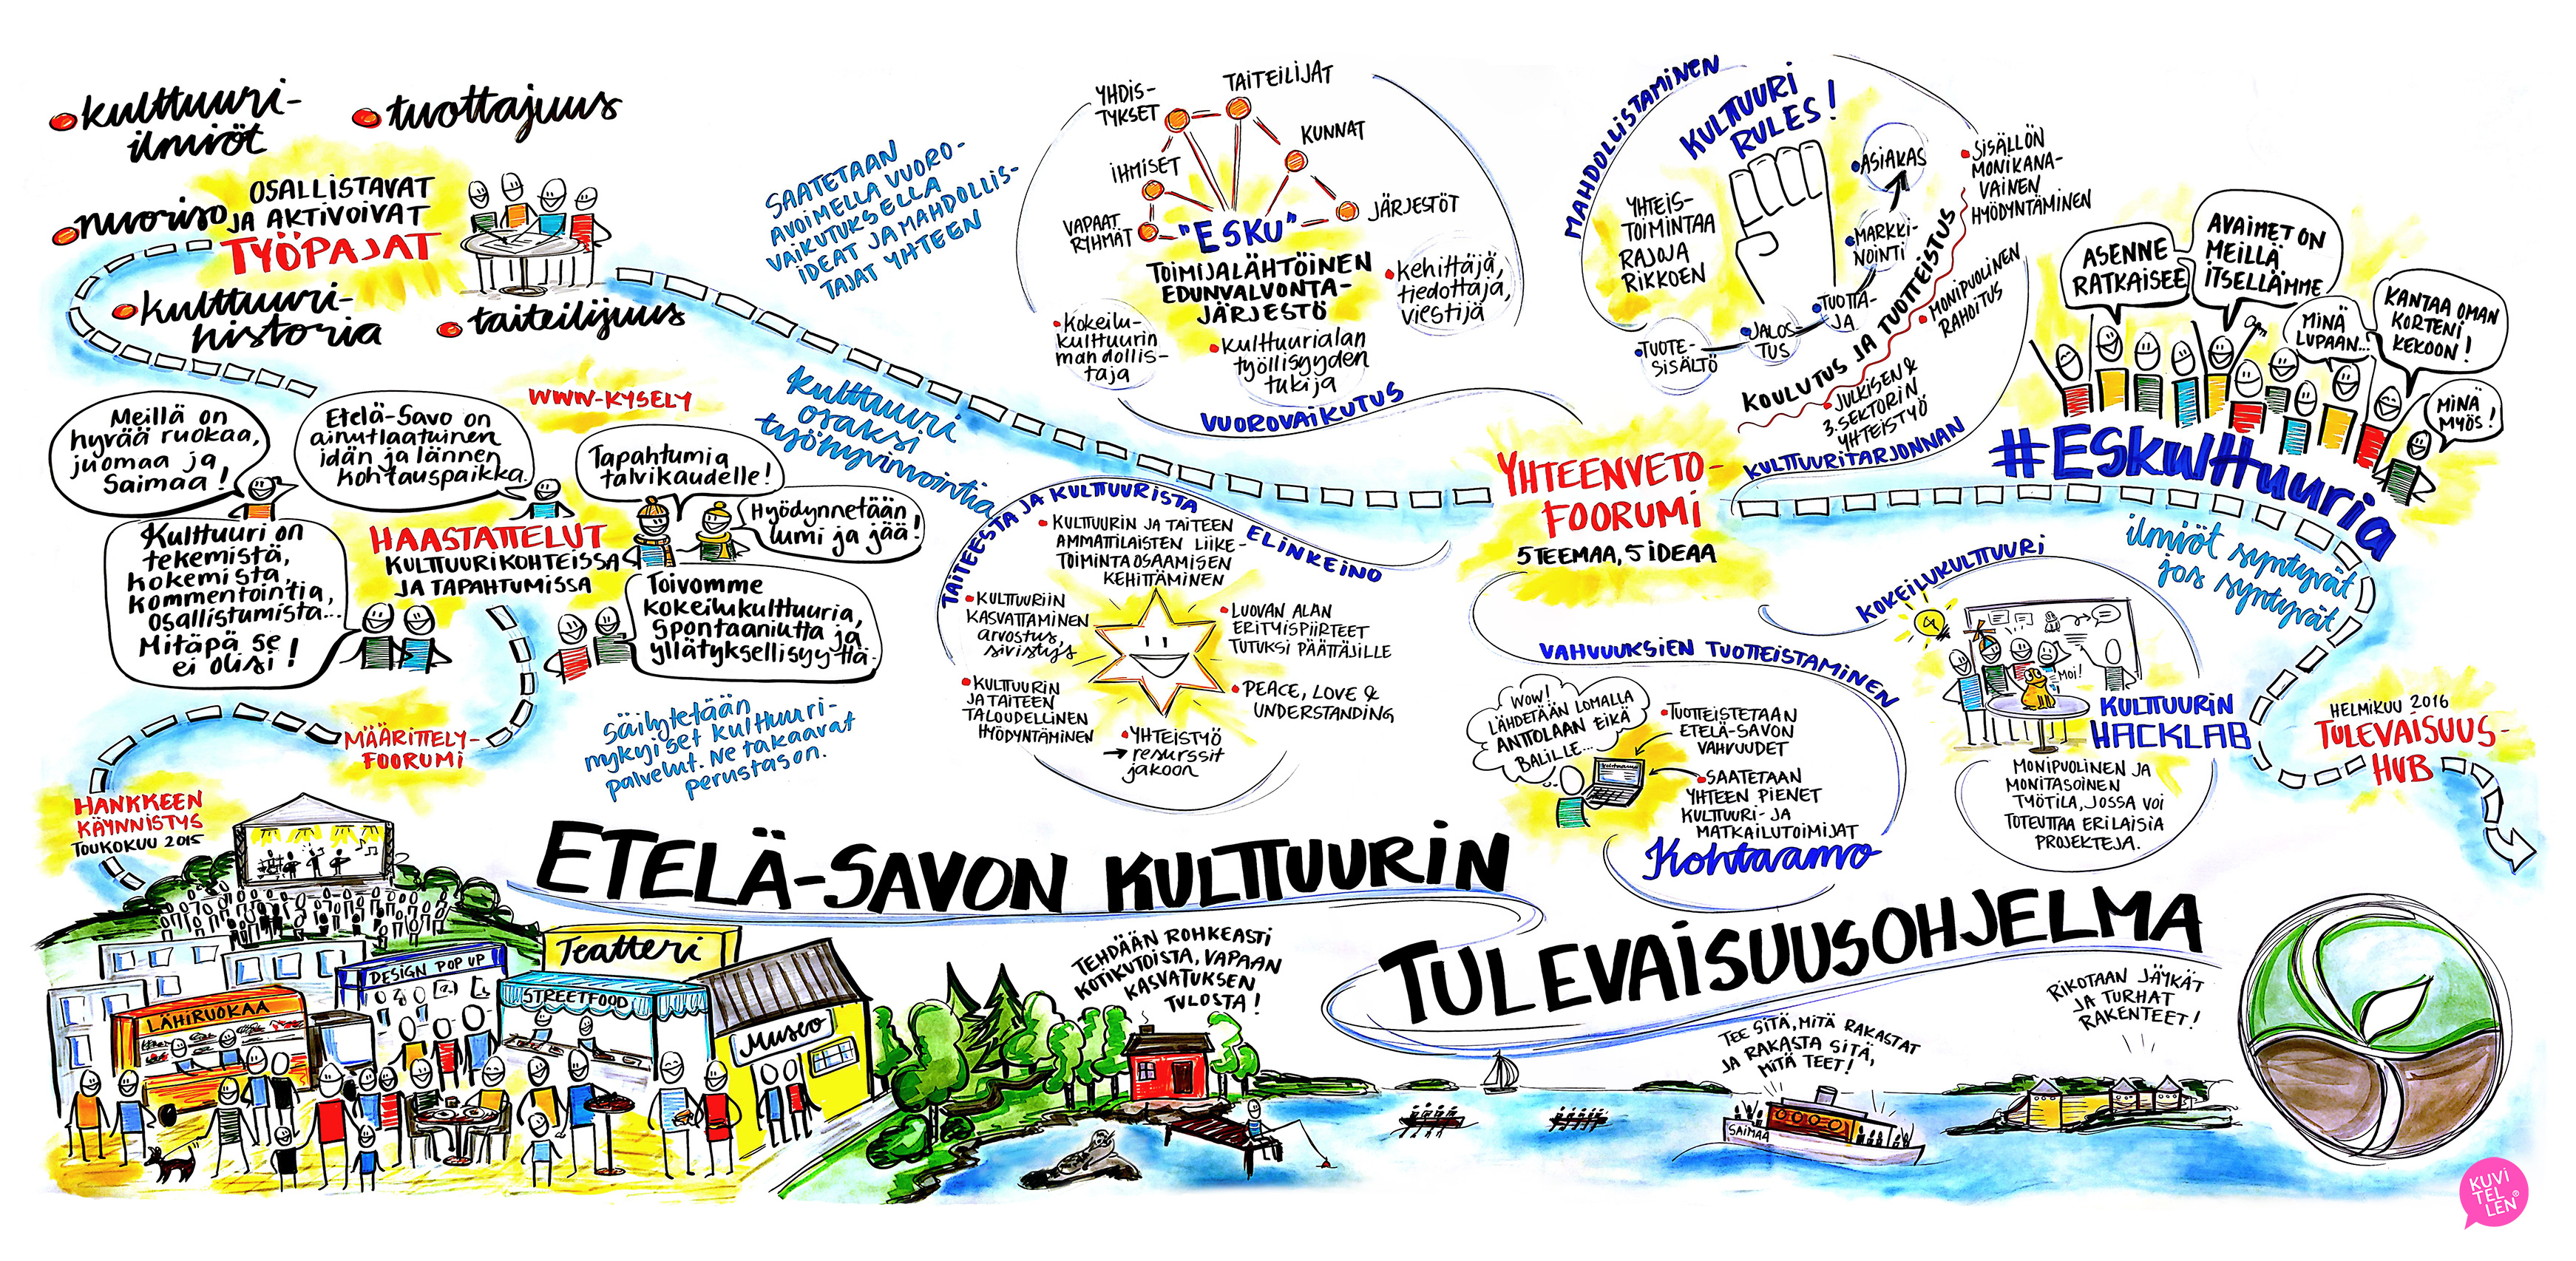 kulttuuri-
ilmiöt
tuottajuus
nuoriso
OSALLISTAVAT
JA AKTIVOIVAT
TYÖPAJAT
kulttuuri-
historia
taiteilijuus
Meillä on
hyvää ruokaa,
juomaa ja
Saimaa!
Etelä-Savo on
ainutlaatuinen
idän ja lännen
kohtauspaikka.
WWW-KYSELY
Tapahtumia
talvikaudelle!
Hyödynnetään
lumi ja jää!
Kulttuuri on
tekemistä,
kokemista,
kommentointia,
osallistumista...
Mitäpä se
ei olisi!
HAASTATTELUT
KULTTUURIKOHTEISSA
JA TAPAHTUMISSA
Toivomme
kokeilukulttuuria,
spontaaniutta ja
yllätyksellisyyttä.
MÄÄRITTELY-
FOORUMI
HANKKEEN
KÄYNNISTYS
TOUKOKUU 2015
Säilytetään
nykyiset kulttuuri-
palvelut. Ne takaavat
perustason.
SAATETAAN
AVOIMELLA VUORO-
VAIKUTUKSELLA
IDEAT JA MAHDOLLIS-
TAJAT YHTEEN
Kulttuuri
osaksi
työhyvinvointia
YHDIS-
TYKSET
TAITEILIJAT
KUNNAT
IHMISET
JÄRJESTÖT
VAPAAT
RYHMÄT
"ESKU"
TOIMIJALÄHTÖINEN
EDUNVALVONTA-
JÄRJESTÖ
kehittäjä,
tiedottaja,
viestijä
Kokeilu-
kulttuurin
mahdollis-
taja
kulttuurialan
työllisyyden
tukija
VUOROVAIKUTUS
TAITEESTA JA KULTTUURISTA
ELINKEINO
KULTTUURIN JA TAITEEN
AMMATTILAISTEN LIIKE-
TOIMINTAOSAAMISEN
KEHITTÄMINEN
KULTTUURIIN
KASVATTAMINEN
arvostus,
sivistys
LUOVAN ALAN
ERITYISPIIRTEET
TUTUKSI PÄÄTTÄJILLE
KULTTUURIN
JA TAITEEN
TALOUDELLINEN
HYÖDYNTÄMINEN
PEACE, LOVE &
UNDERSTANDING
YHTEISTYÖ
→ resurssit
jakoon
YHTEENVETO-
FOORUMI
5 TEEMAA, 5 IDEAA
MAHDOLLISTAMINEN
KULTTUURI
RULES!
YHTEIS-
TOIMINTAA
RAJOJA
RIKKOEN
ASIAKAS
MARKKI-
NOINTI
TUOTTA-
JA
JALOS-
TUS
TUOTE-
SISÄLTÖ
KOULUTUS JA TUOTTEISTUS
SISÄLLÖN
MONIKANA-
VAINEN
HYÖDYNTÄMINEN
MONIPUOLINEN
RAHOITUS
JULKISEN &
3. SEKTORIN
YHTEISTYÖ
KULTTUURITARJONNAN
ASENNE
RATKAISEE
AVAIMET ON
MEILLÄ
ITSELLÄMME
MINÄ
LUPAAN...
KANTAA OMAN
KORTENI
KEKOON!
MINÄ
MYÖS!
#ESKulttuuria
ilmiöt syntyvät
jos syntyvät
VAHVUUKSIEN TUOTTEISTAMINEN
WOW!
LÄHDETÄÄN LOMALLA
ANTTOLAAN EIKÄ
BALILLE...
TUOTTEISTETAAN
ETELÄ-SAVON
VAHVUUDET
SAATETAAN
YHTEEN PIENET
KULTTUURI- JA
MATKAILUTOIMIJAT
Kohtaamo
KOKEILUKULTTUURI
MOI!
KULTTUURIN
HACKLAB
MONIPUOLINEN JA
MONITASOINEN
TYÖTILA, JOSSA VOI
TOTEUTTAA ERILAISIA
PROJEKTEJA.
HELMIKUU 2016
TULEVAISUUS-
HUB
ETELÄ-SAVON KULTTUURIN
TULEVAISUUSOHJELMA
LÄHIRUOKAA
DESIGN POP UP
Teatteri
STREETFOOD
Museo
TEHDÄÄN ROHKEASTI
KOTIKUTOISTA, VAPAAN
KASVATUKSEN
TULOSTA!
TEE SITÄ, MITÄ RAKASTAT
JA RAKASTA SITÄ,
MITÄ TEET!
SAIMAA
RIKOTAAN JÄYKÄT
JA TURHAT
RAKENTEET!
KUVI
TEL
LEN®